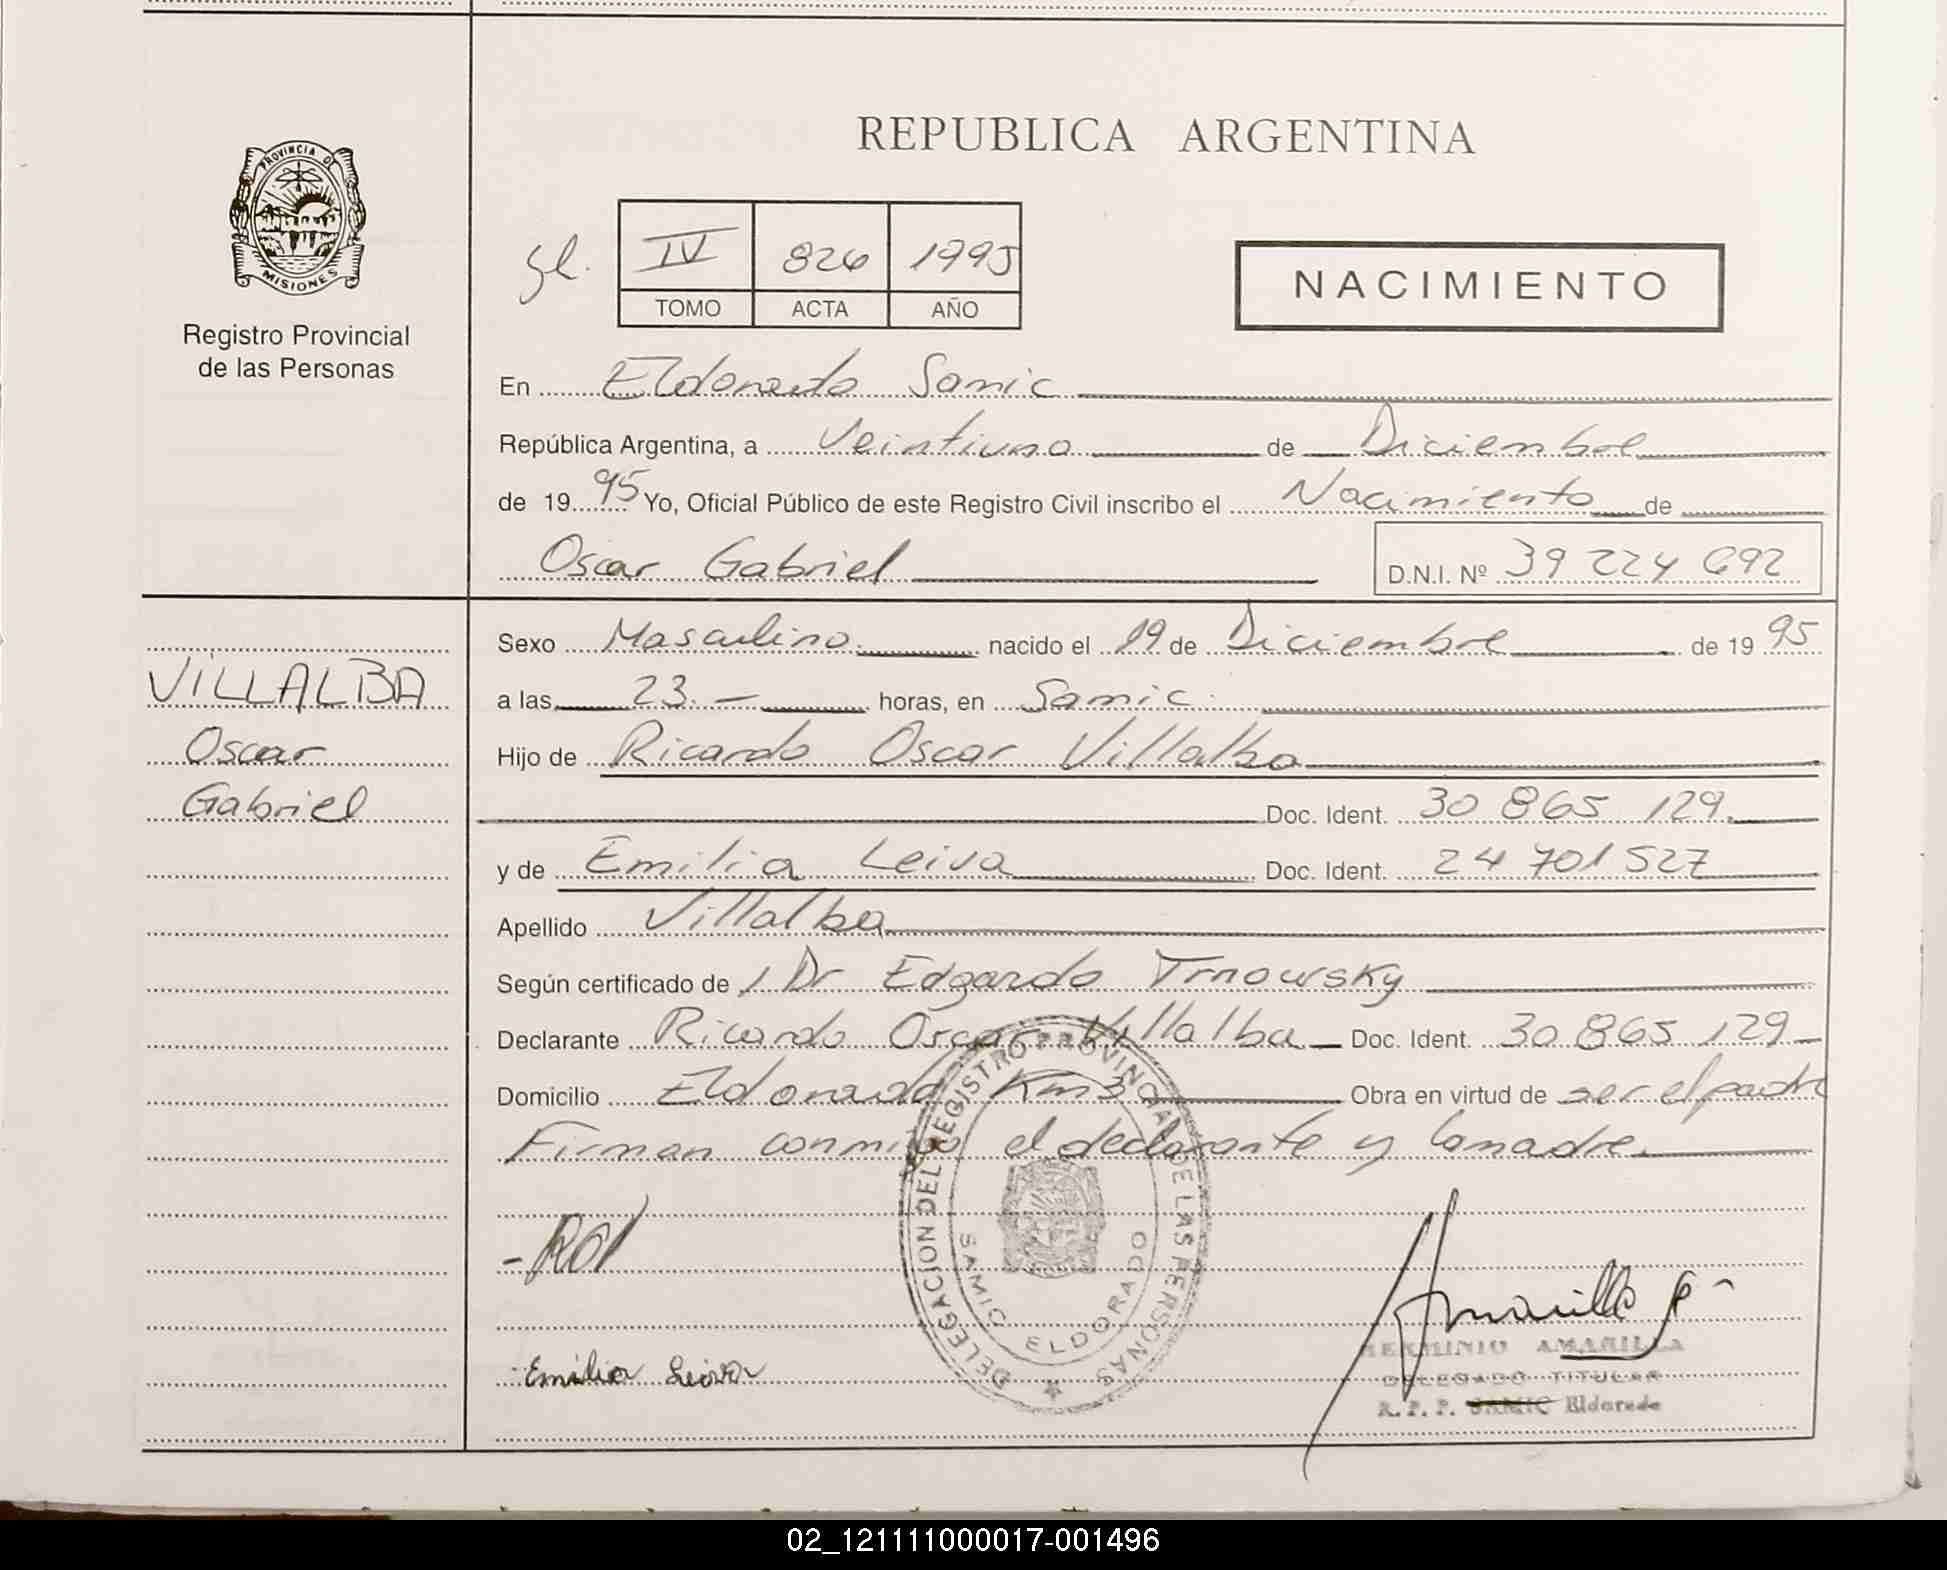 REPUBLICA ARGENTINA
PROVINCIA DE
MISIONES
Registro Provincial
de las Personas
IV 826 1995
TOMO ACTA AÑO
NACIMIENTO
En Eldorado Samic
República Argentina, a Veintiuno de Diciembre
de 1995 Yo, Oficial Público de este Registro Civil inscribo el Nacimiento de
Oscar Gabriel D.N.I. Nº 39 224 692
VILLALBA
Oscar
Gabriel
Sexo Masculino nacido el 19 de Diciembre de 1995
a las 23.- horas, en Samic
Hijo de Ricardo Oscar Villalba
Doc. Ident. 30 865 129
y de Emilia Leiva Doc. Ident. 24 701 527
Apellido Villalba
Según certificado de Dr Edgardo Trnowsky
Declarante Ricardo Oscar Villalba Doc. Ident. 30 865 129
Domicilio Eldorado Km3 Obra en virtud de ser el padre
Firman conmigo el declarante y la madre.
DELEGACION DEL REGISTRO PROVINCIAL DE LAS PERSONAS
SAMIC ELDORADO
Emilia Leiva
Amarilla
HERMINIO AMARILLA
DELEGADO TITULAR
R. P. P. SAMIC Eldorado
02_121111000017-001496